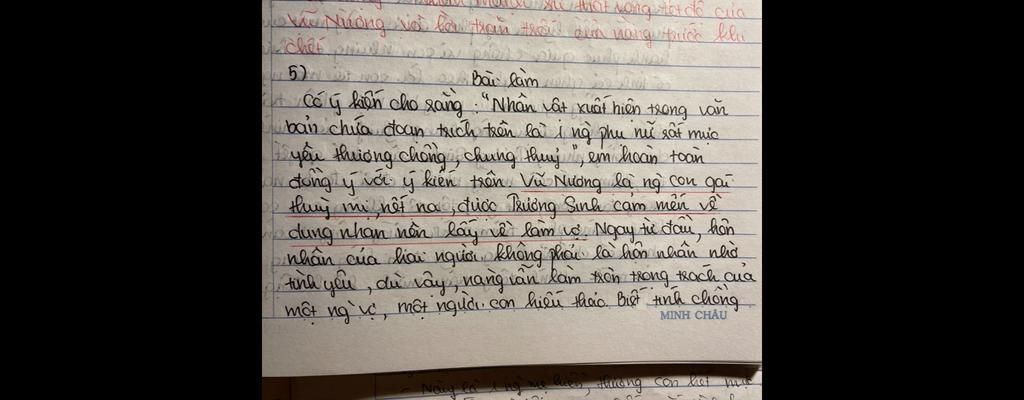 Vũ Nương với lời trăn trối của nàng trước khi
chết.
5) Bài làm
Có ý kiến cho rằng: "Nhân vật xuất hiện trong văn
bản chứa đoạn trích trên là 1 ng̀ phụ nữ rất mực
yêu thương chồng, chung thuỷ", em hoàn toàn
đồng ý với ý kiến trên. Vũ Nương là ng̀ con gái
thuỳ mị, nết na, được Trương Sinh cảm mến về
dung nhan nên lấy về làm vợ. Ngay từ đầu, hôn
nhân của hai người không phải là hôn nhân nhờ
tình yêu, dù vậy, nàng vẫn làm tròn trọng trách của
một ng̀ vợ, một người con hiếu thảo. Biết tính chồng
MINH CHÂU
thương con hết mực